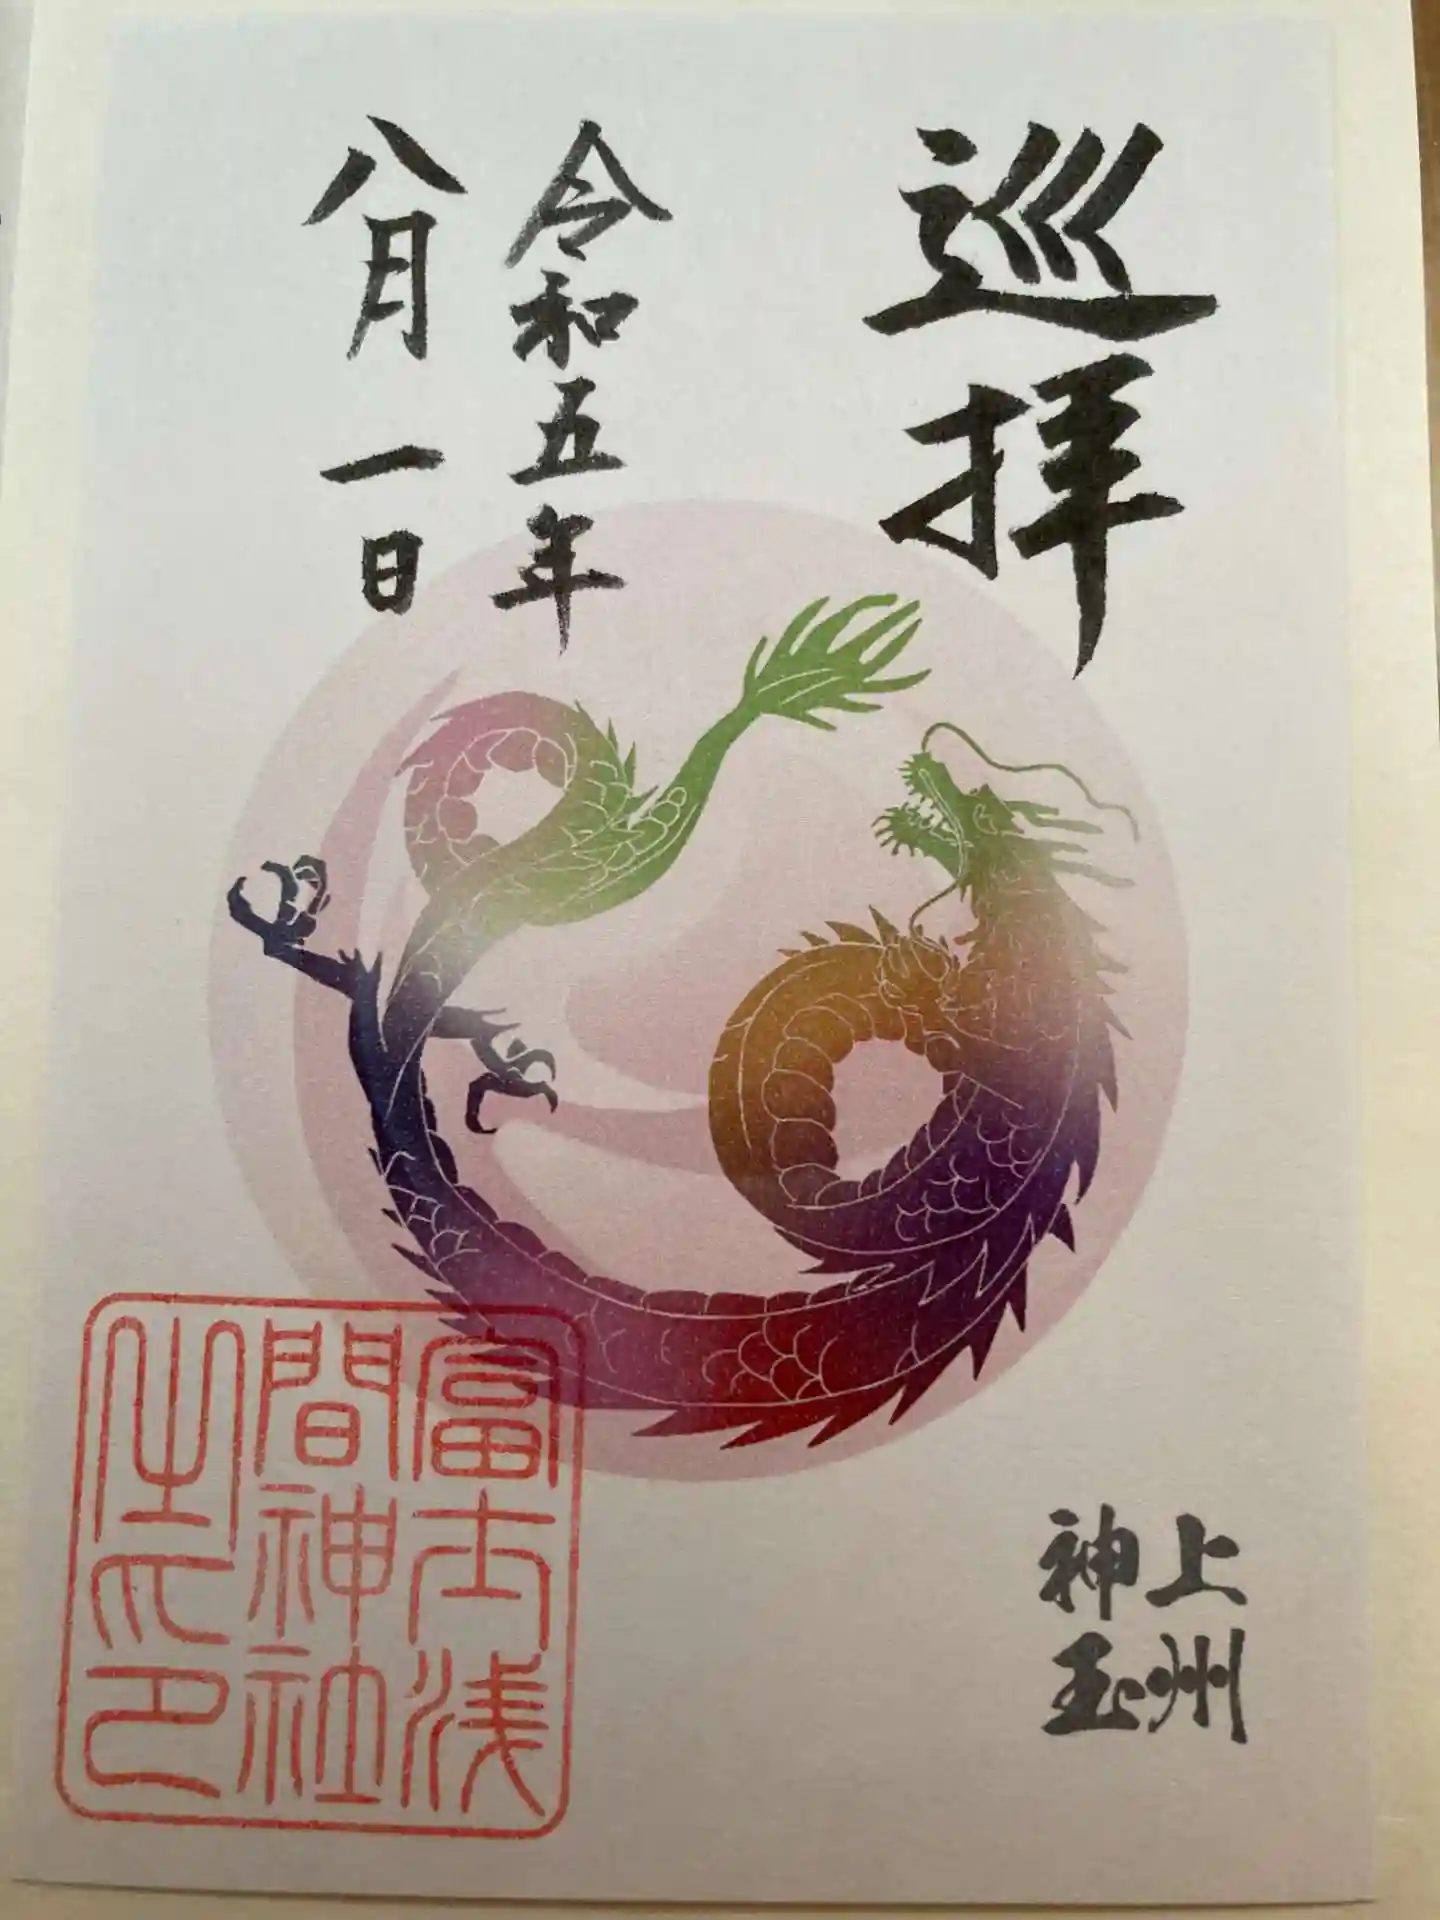 巡拝
令和五年
八月一日
上州
神玉
富士浅
間神社
之印